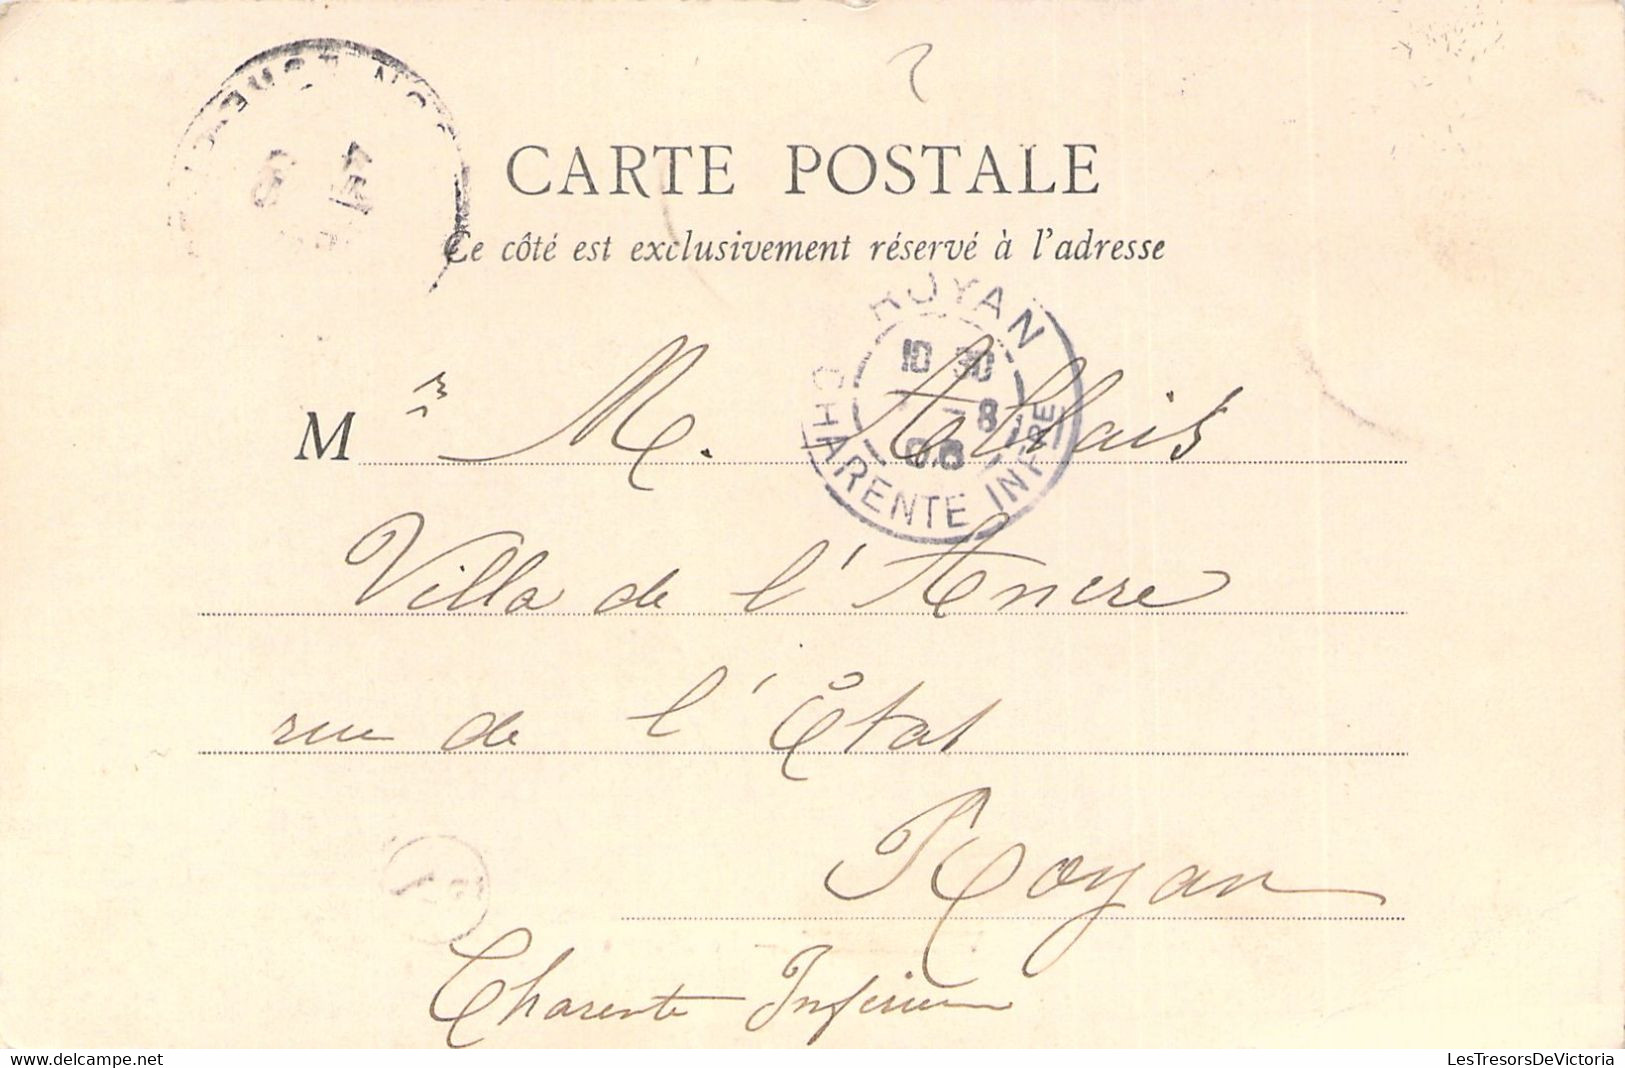 CARTE POSTALE
Ce côté est exclusivement réservé à l'adresse
ROYAN
10 30
-8
CHARENTE INFRE
Mr M.
Villa de l'Ancre
rue de l'État
Royan
Charente Inférieure
LesTresorsDeVictoria
delcampe.net